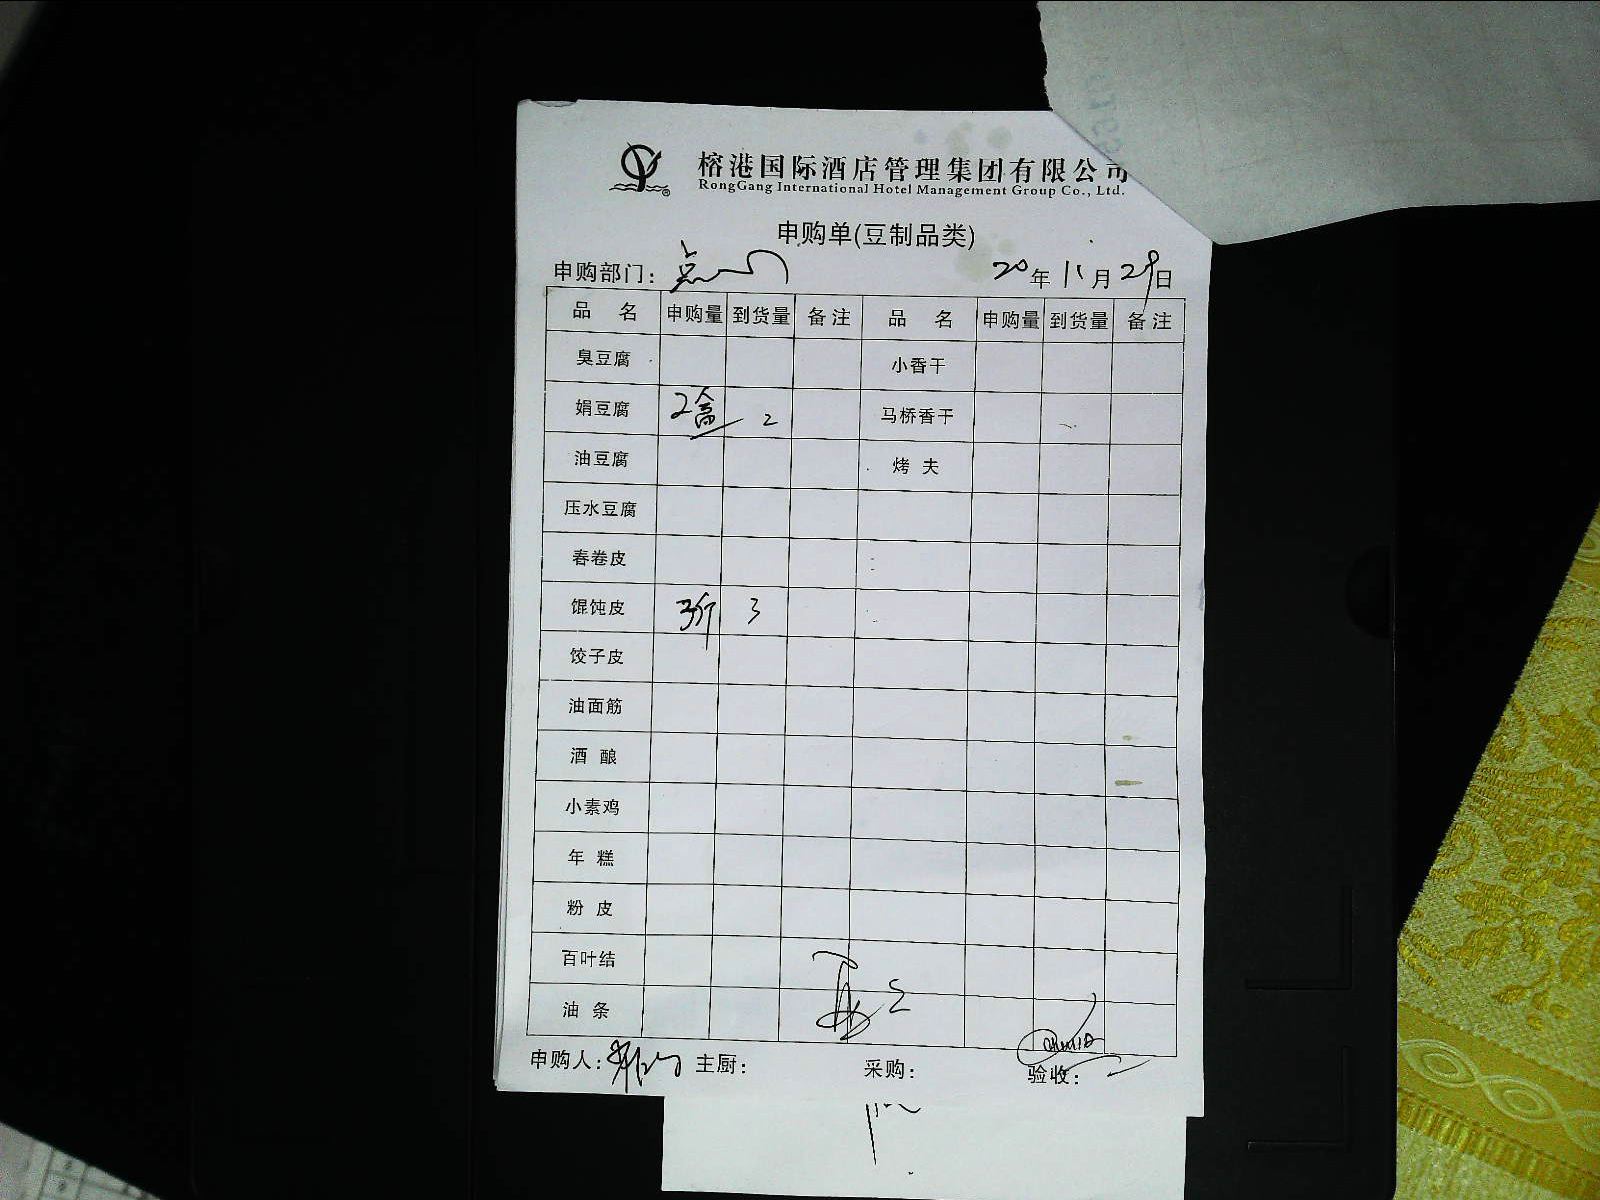 榕港国际酒店管理集团有限公司
RongGang International Hotel Management Group Co., Ltd.
申购单(豆制品类)
申购部门: 点 20年11月29日
品 名 申购量 到货量 备注 品 名 申购量 到货量 备注
臭豆腐 小香干
娟豆腐 2盒 2 马桥香干
油豆腐 烤 夫
压水豆腐
春卷皮
馄饨皮 3斤 3
饺子皮
油面筋
酒 酿
小素鸡
年 糕
粉 皮
百叶结
油 条
申购人: 主厨: 采购: 验收: